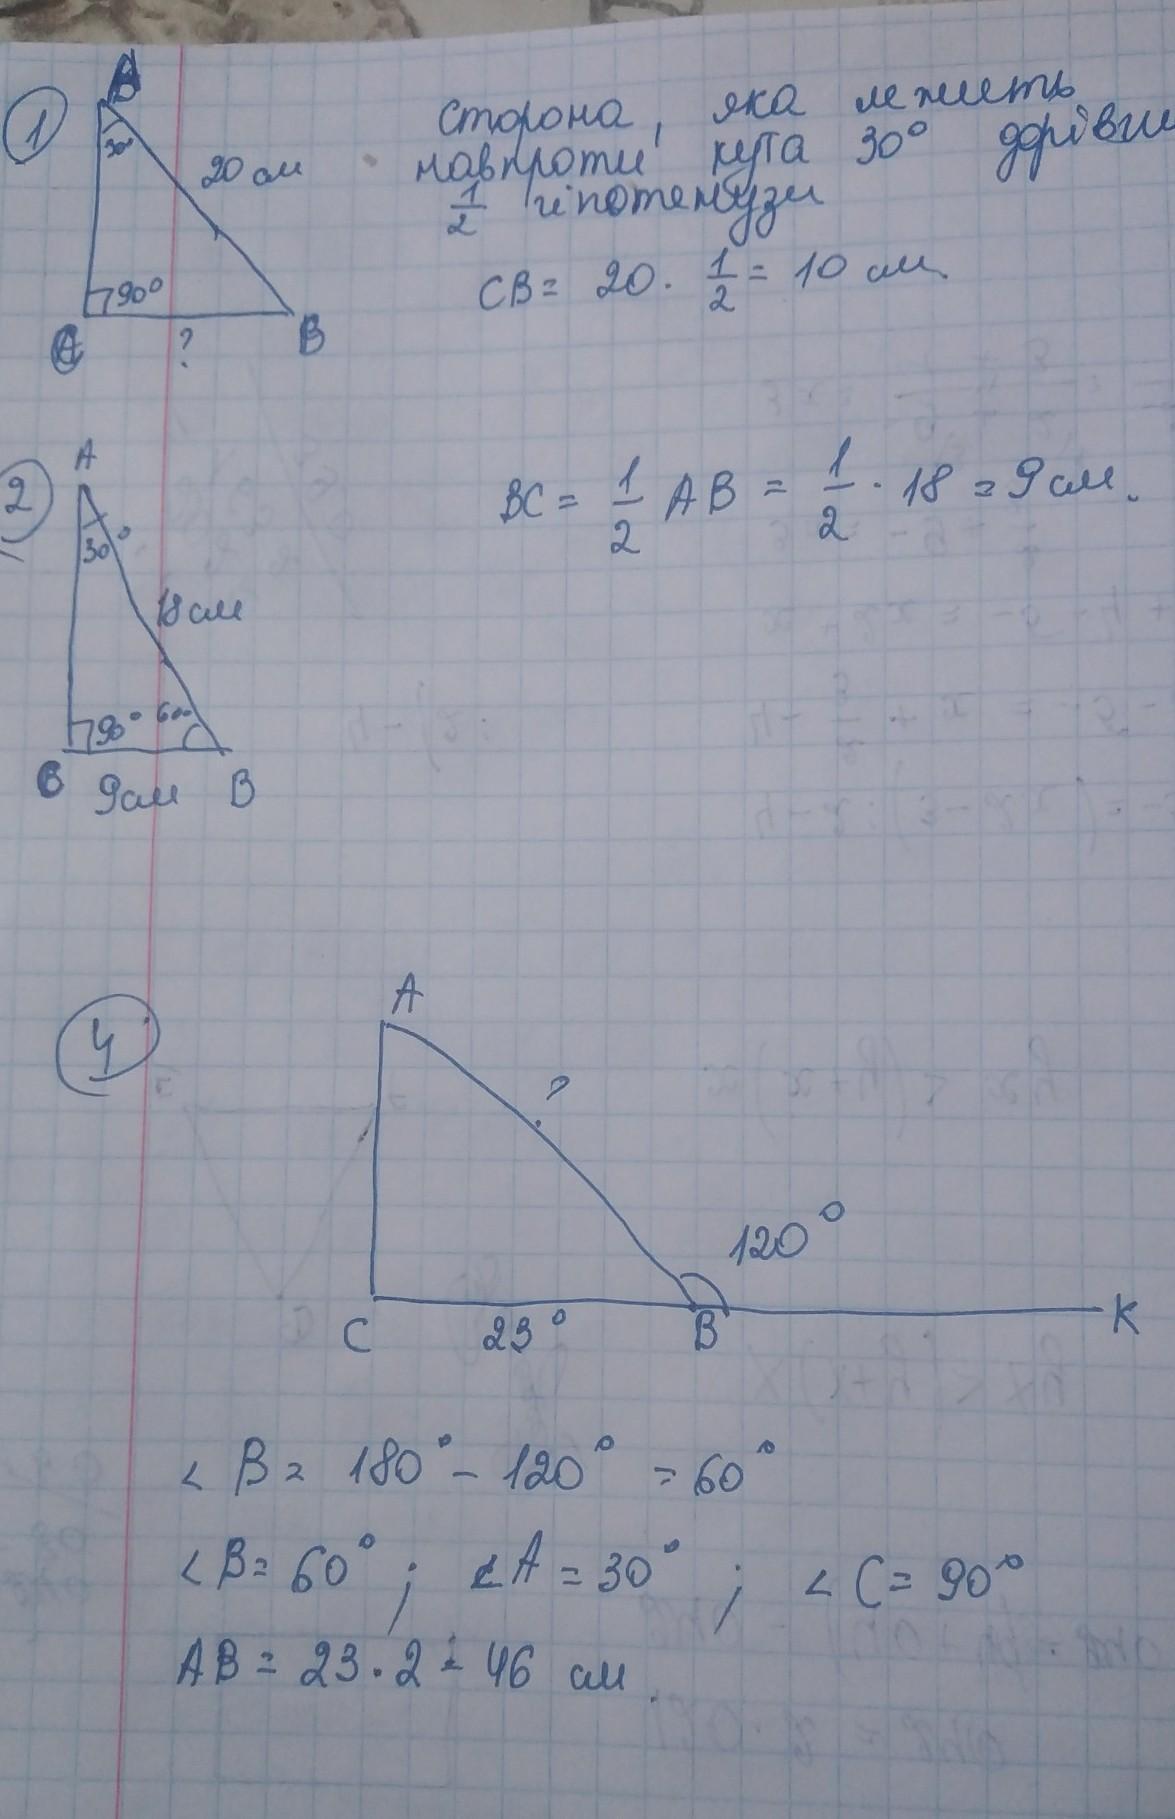 1
30°
20 см
90°
?
B
сторона, яка лежить
навпроти кута 30°
1/2 гіпотенузи
CB = 20 · 1/2 = 10 см.
2
A
30°
18 см
90°
B
9 см
BC = 1/2 AB = 1/2 · 18 = 9 см.
4
A
?
120°
C
23°
B
K
∠ B = 180° - 120° = 60°
∠ B = 60° ; ∠ A = 30° ; ∠ C = 90°
AB = 23 · 2 = 46 см.